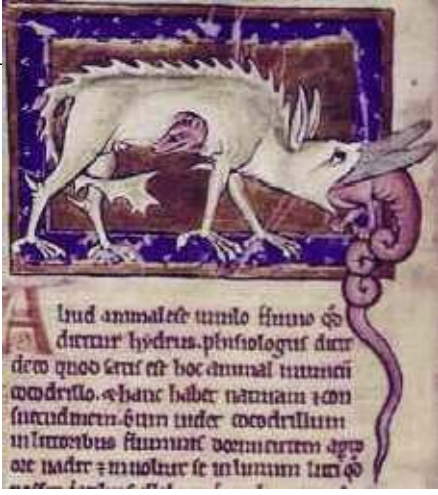 Aliud animal est in nilo flumino qđ
dicitur hydrus. phisiologus dicit
de eo quod satis est hoc animal inimicū
cocodrillo. & hanc habet naturam ⁊ con
suetudinem. Cum uidet cocodrillum
in litoribus fluminis dormientem apto
ore uadit ⁊ inuoluit se in limum luti qđ